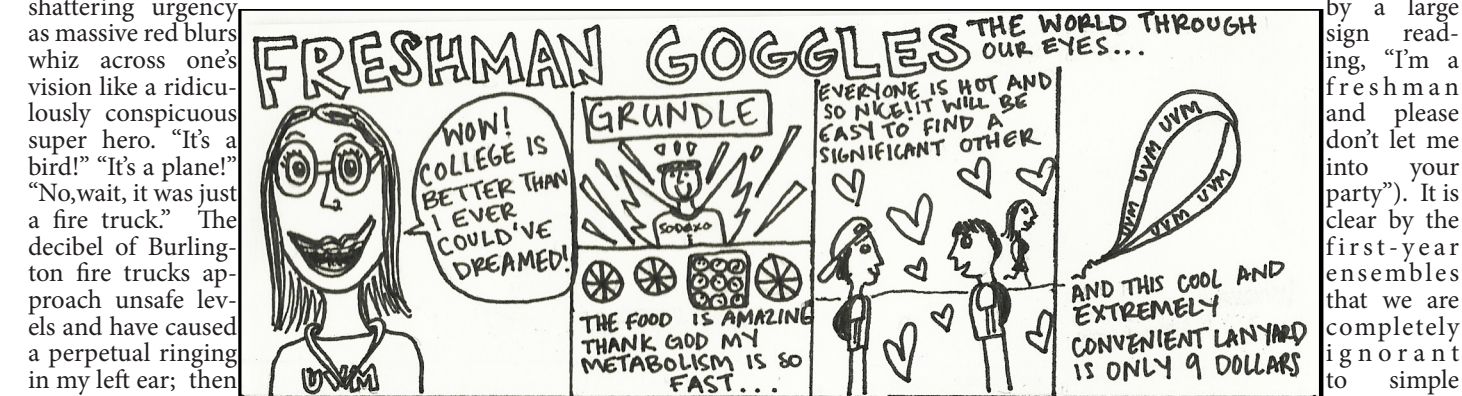 shattering urgency
as massive red blurs
whiz across one's
vision like a ridicu-
lously conspicuous
super hero. “It's a
bird!” “It's a plane!”
“No,wait, it was just
a fire truck.” The
decibel of Burling-
ton fire trucks ap-
proach unsafe lev-
els and have caused
a perpetual ringing
in my left ear; then
FRESHMAN GOGGLES
THE WORLD THROUGH
OUR EYES...
WOW!
COLLEGE IS
BETTER THAN
I EVER
COULD'VE
DREAMED!
UVM
GRUNDLE
SODEXO
THE FOOD IS AMAZING
THANK GOD MY
METABOLISM IS SO
FAST...
EVERYONE IS HOT AND
SO NICE!! IT WILL BE
EASY TO FIND A
SIGNIFICANT OTHER
UVM
UVM
UVM
UVM
UVM
UVM
AND THIS COOL AND
EXTREMELY
CONVENIENT LANYARD
IS ONLY 9 DOLLARS
by a large
sign read-
ing, “I'm a
freshman
and please
don't let me
into your
party”). It is
clear by the
first-year
ensembles
that we are
completely
ignorant
to simple